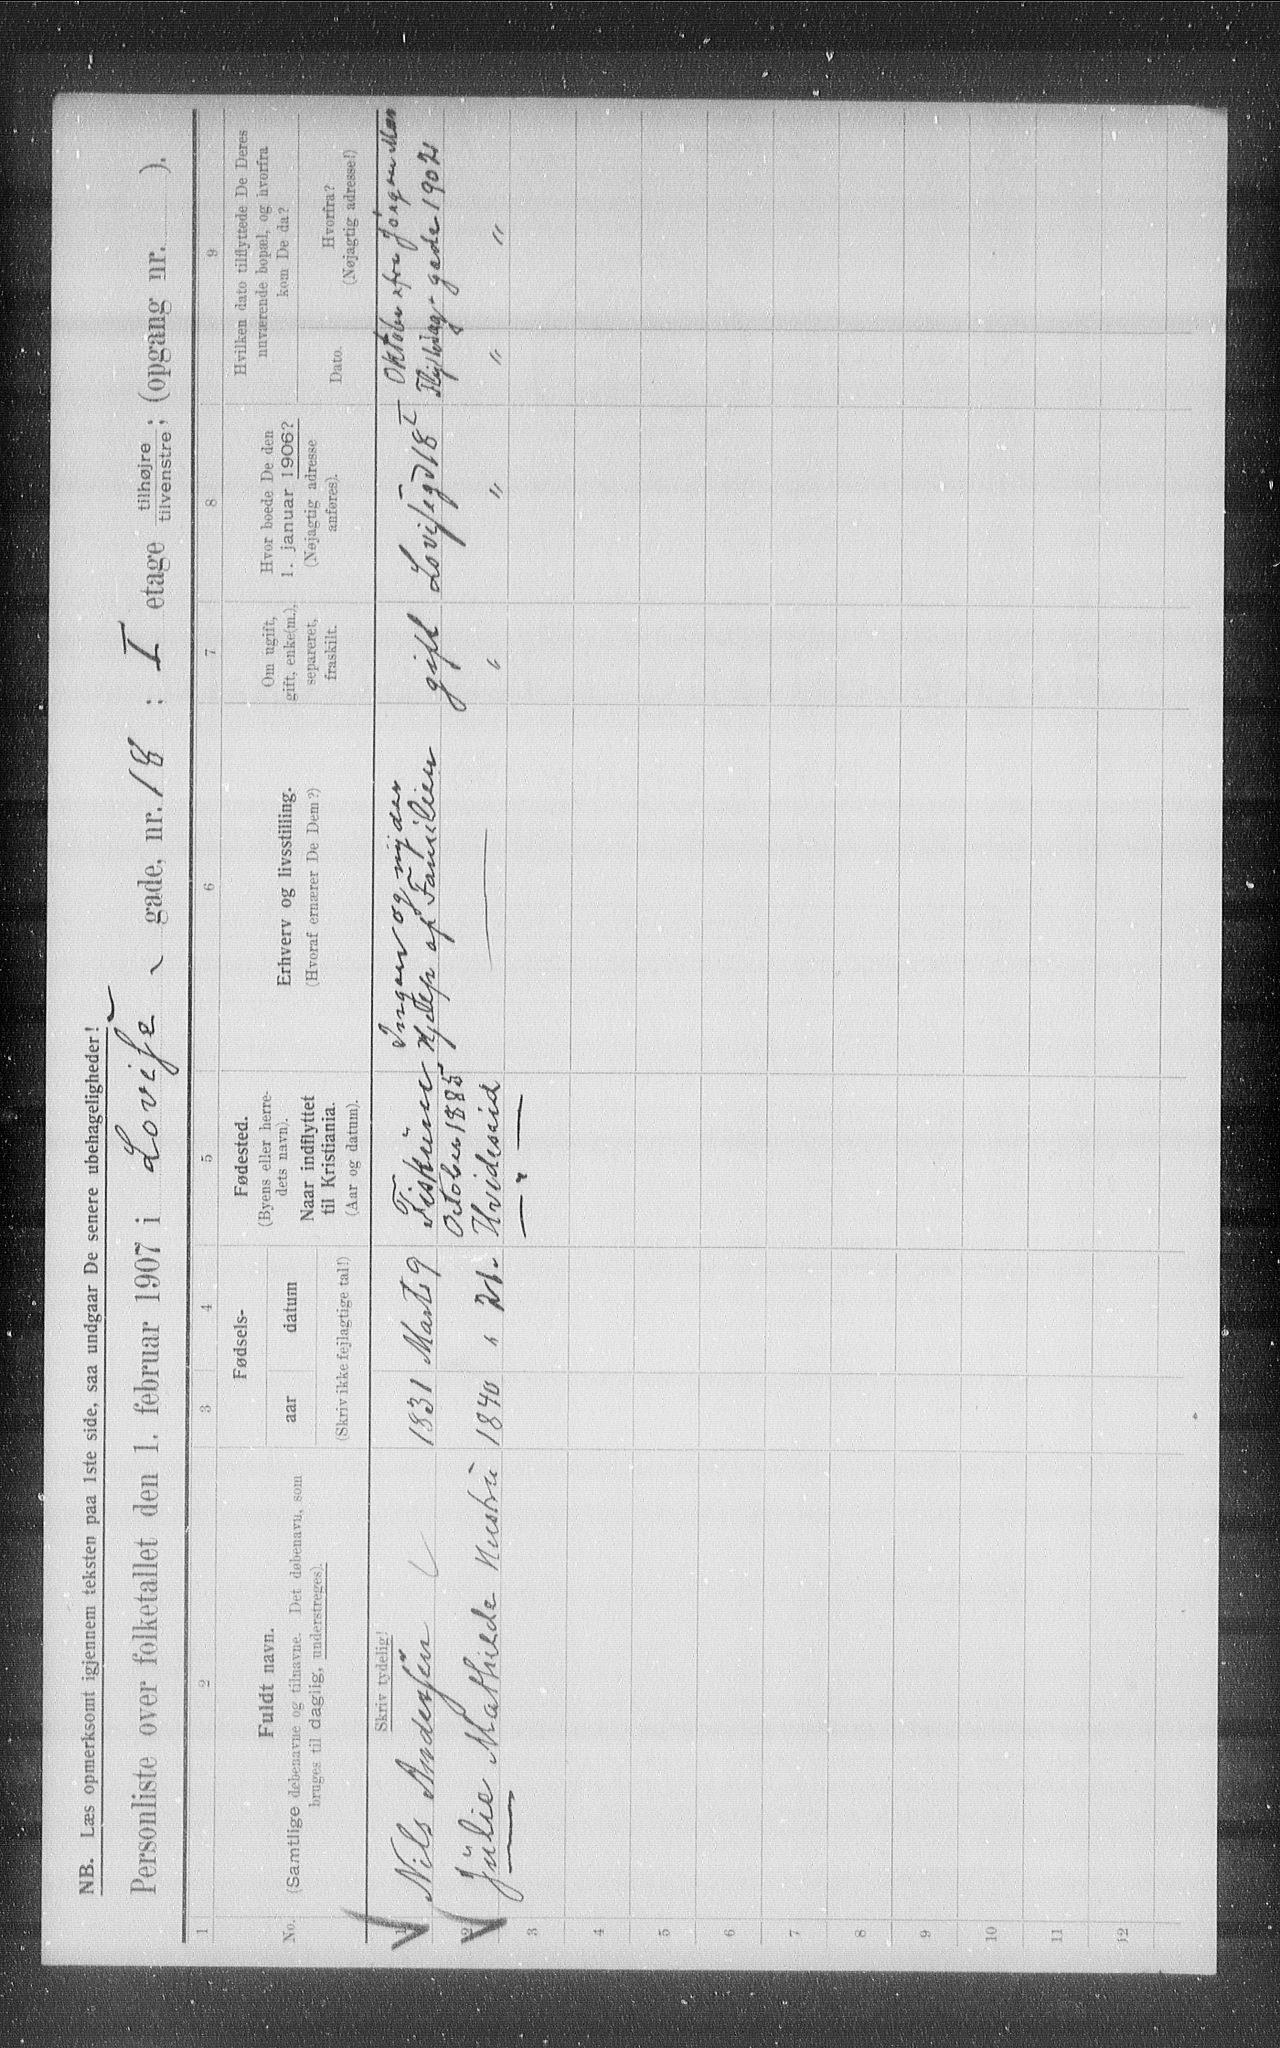 NB. Læs opmerksomt igjennem teksten paa 1ste side, saa undgaar De senere ubehageligheder!
Personliste over folketallet den 1. februar 1907 i Lovise gade, nr. 18 ; I etage tilhøjre tilvenstre; (opgang nr. ).
1 2 3 4 5 6 7 8 9
No.
Fuldt navn.
(Samtlige døbenavne og tilnavne. Det døbenavn, som
bruges til daglig, understreges).
Fødsels-
aar datum
(Skriv ikke fejlagtige tal!)
Fødested.
(Byens eller herre-
dets navn).
Naar indflyttet
til Kristiania.
(Aar og datum).
Erhverv og livsstilling.
(Hvoraf ernærer De Dem?)
Om ugift,
gift, enke(m.),
separeret,
fraskilt.
Hvor boede De den
1. januar 1906?
(Nøjagtig adresse
anføres).
Hvilken dato tilflyttede De Deres
nuværende bopæl, og hvorfra
kom De da?
Dato.
Hvorfra?
(Nøjagtig adresse!)
Skriv tydelig!
1 Nils Andersen 1831 Marts 9
October 1885
Ingen og nyder
Hjelp af Familien
gift
Lovisegd 18 I
Oktober fra Jörgen
gade 1902
2 Jülie Mathilde Hustrü 1840 " 21. Hvideseid — " — — " " " "
3
4
5
6
7
8
9
10
11
12